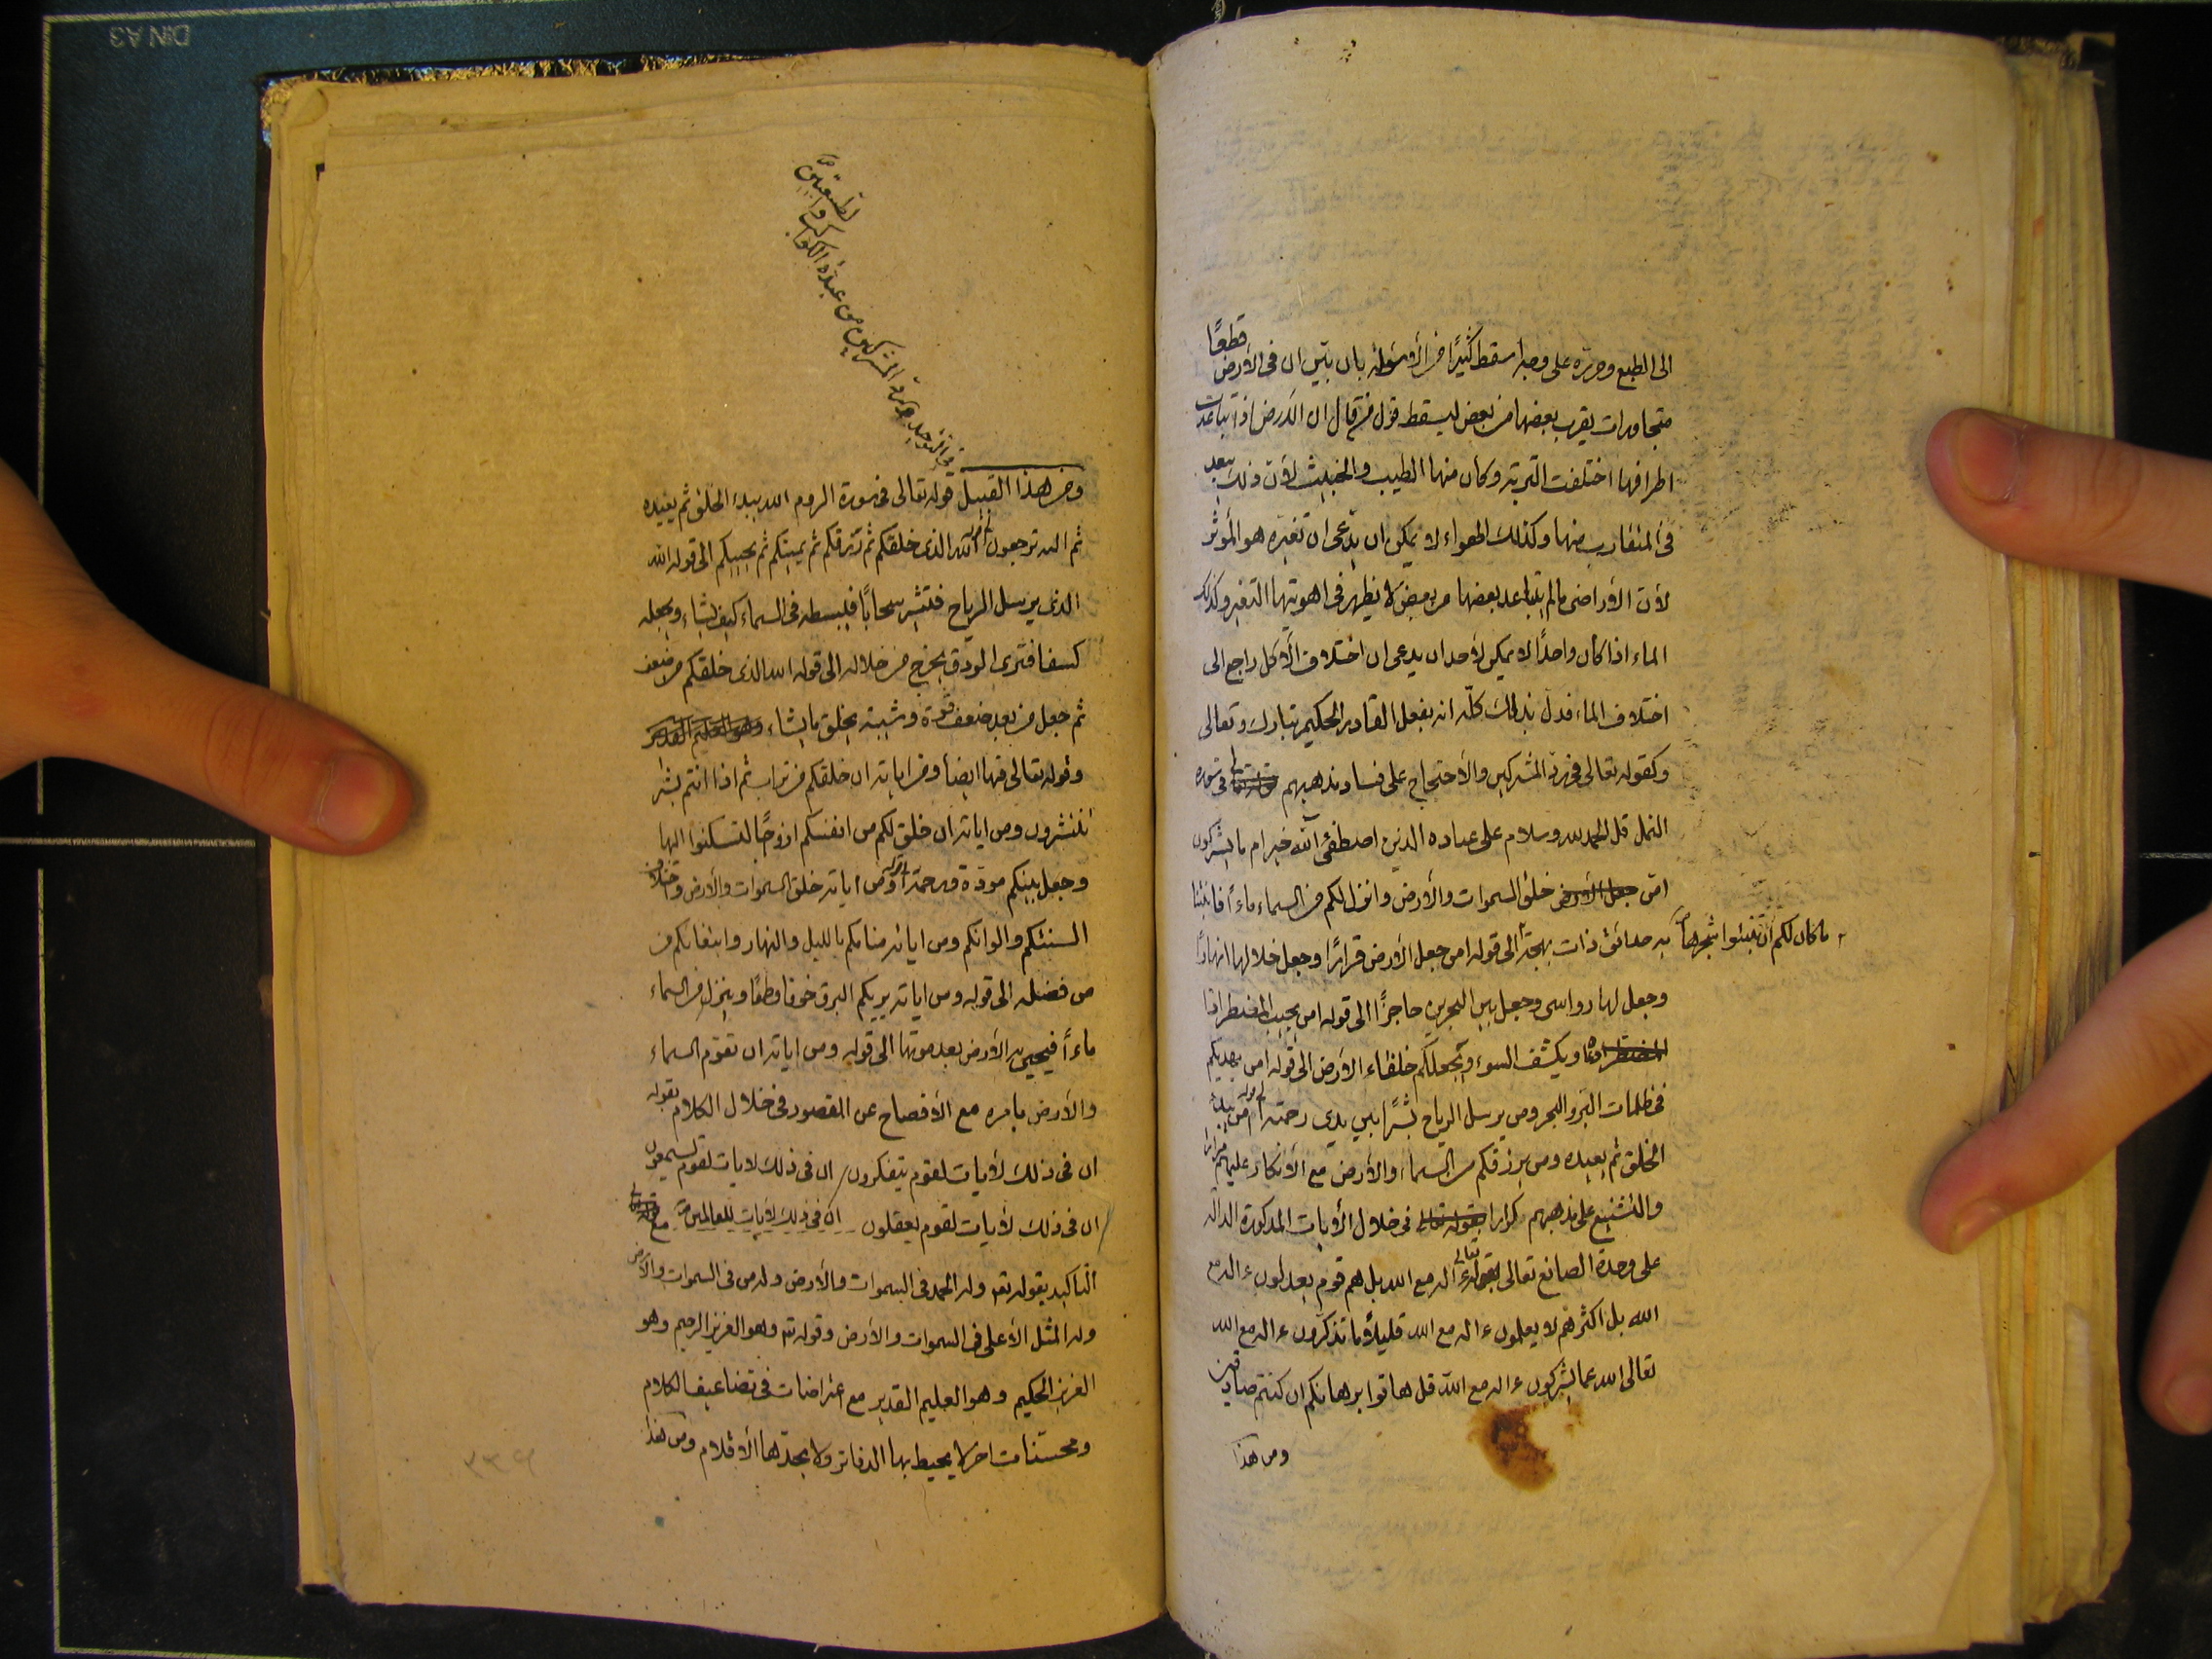 الى الطبع ورده على وجه اسقط كثيرًا من الأوسئلة بان بيّن ان فى الأرض قطعًا
متجاورات يقرب بعضها من بعض ليسقط قول من قال ان الأرض اذا تباعدت
اطرافها اختلفت التربة وكان منها الطيب والخبيث لأن ذلك يبعد
فى المتقارب منها وكذلك الهواء لا يمكن ان يدّعى ان تغيره هو المؤثر
لأن الأراضى ما لم يتباعد بعضها من بعض لا يظهر فى اهويتها التغير وكذلك
الماء اذا كان واحدًا لا يمكن لأحد ان يدعى ان اختلاف الأكل راجع الى
اختلاف الماء فدل بذلك كلّه انه بفعل القادر الحكيم تبارك وتعالى
وكقوله تعالى فى رد المشركين والأحتجاج على فساد مذهبهم فى سورة
النمل قل الحمد لله وسلام على عباده الذين اصطفى آلله خير ام ما يشركون
امّن خلق السموات والأرض وانزل لكم من السماء ماءً فانبتنا
به حدائق ذات بهجة ما كان لكم أن تنبتوا شجرها الى قوله امن جعل الأرض قرارًا وجعل خلالها انهارًا
وجعل لها رواسى وجعل بين البحرين حاجزًا الى قوله امن يجيب المضطر اذا
دعاه ويكشف السوء ويجعلكم خلفاء الأرض الى قوله امن يهديكم
فى ظلمات البر والبحر ومن يرسل الرياح بشرًا بين يدى رحمته الى قوله امّن يبدأ
الخلق ثم يعيده ومن يرزقكم من السماء والأرض مع الأنكار عليهم مرارا
والتشنيع على مذهبهم كرارا فى خلال الأيات المذكورة الدالة
على وحدة الصانع تعالى بقوله تعالى ءاله مع الله بل هم قوم يعدلون ءاله مع
الله بل اكثرهم لا يعلمون ءاله مع الله قليلاً ما تذكرون ءاله مع الله
تعالى الله عما يشركون ءاله مع الله قل هاتوا برهانكم ان كنتم صادقين
ومن هذا
فى التوحيد ورد المشركين من عبدة الكواكب والطبيعيين
ومن هذا القبيل قوله تعالى فى سورة الروم الله يبدؤ الخلق ثم يعيده
ثم اليه ترجعون الى قوله الله الذى خلقكم ثم رزقكم ثم يميتكم ثم يحييكم الى قوله الله
الذى يرسل الرياح فتثير سحابًا فيبسطه فى السماء كيف يشاء ويجعله
كسفا فترى الودق يخرج من خلاله الى قوله الله الذى خلقكم من ضعف
ثم جعل من بعد ضعف قوة وشيبة يخلق ما يشاء وهو العليم القدير
وقوله تعالى فيها ايضاً ومن اياته ان خلقكم من تراب ثم اذا انتم بشر
تنتشرون ومن اياته ان خلق لكم من انفسكم ازوجًا لتسكنوا اليها
وجعل بينكم مودّة ورحمة الى قوله ومن اياته خلق السموات والأرض واختلاف
السنتكم والوانكم ومن اياته منامكم بالليل والنهار وابتغائكم من
من فضله الى قوله ومن اياته يريكم البرق خوفا وطمعًا وينزل من السماء
ماءً فيحيى به الأرض بعد موتها الى قوله ومن اياته ان تقوم السماء
والأرض بامره مع الأفصاح عن المقصود فى خلال الكلام بقوله
ان فى ذلك لأيات لقوم يتفكرون ان فى ذلك لايات لقوم يسمعون
ان فى ذلك لأيات لقوم يعقلون ان فى ذلك لأيات للعالمين مع
التاكيد بقوله تعه وله الحمد فى السموات والأرض وله من فى السموات والأرض
وله المثل الأعلى فى السموات والأرض وقوله تعه وهو العزيز الرحيم وهو
العزيز الحكيم وهو العليم القدير مع اعتراضات فى تضاعيف الكلام
ومحسّنات اخر لا يحيط بها الدفاتر ولا يحدّها الأقلام ومن هذا